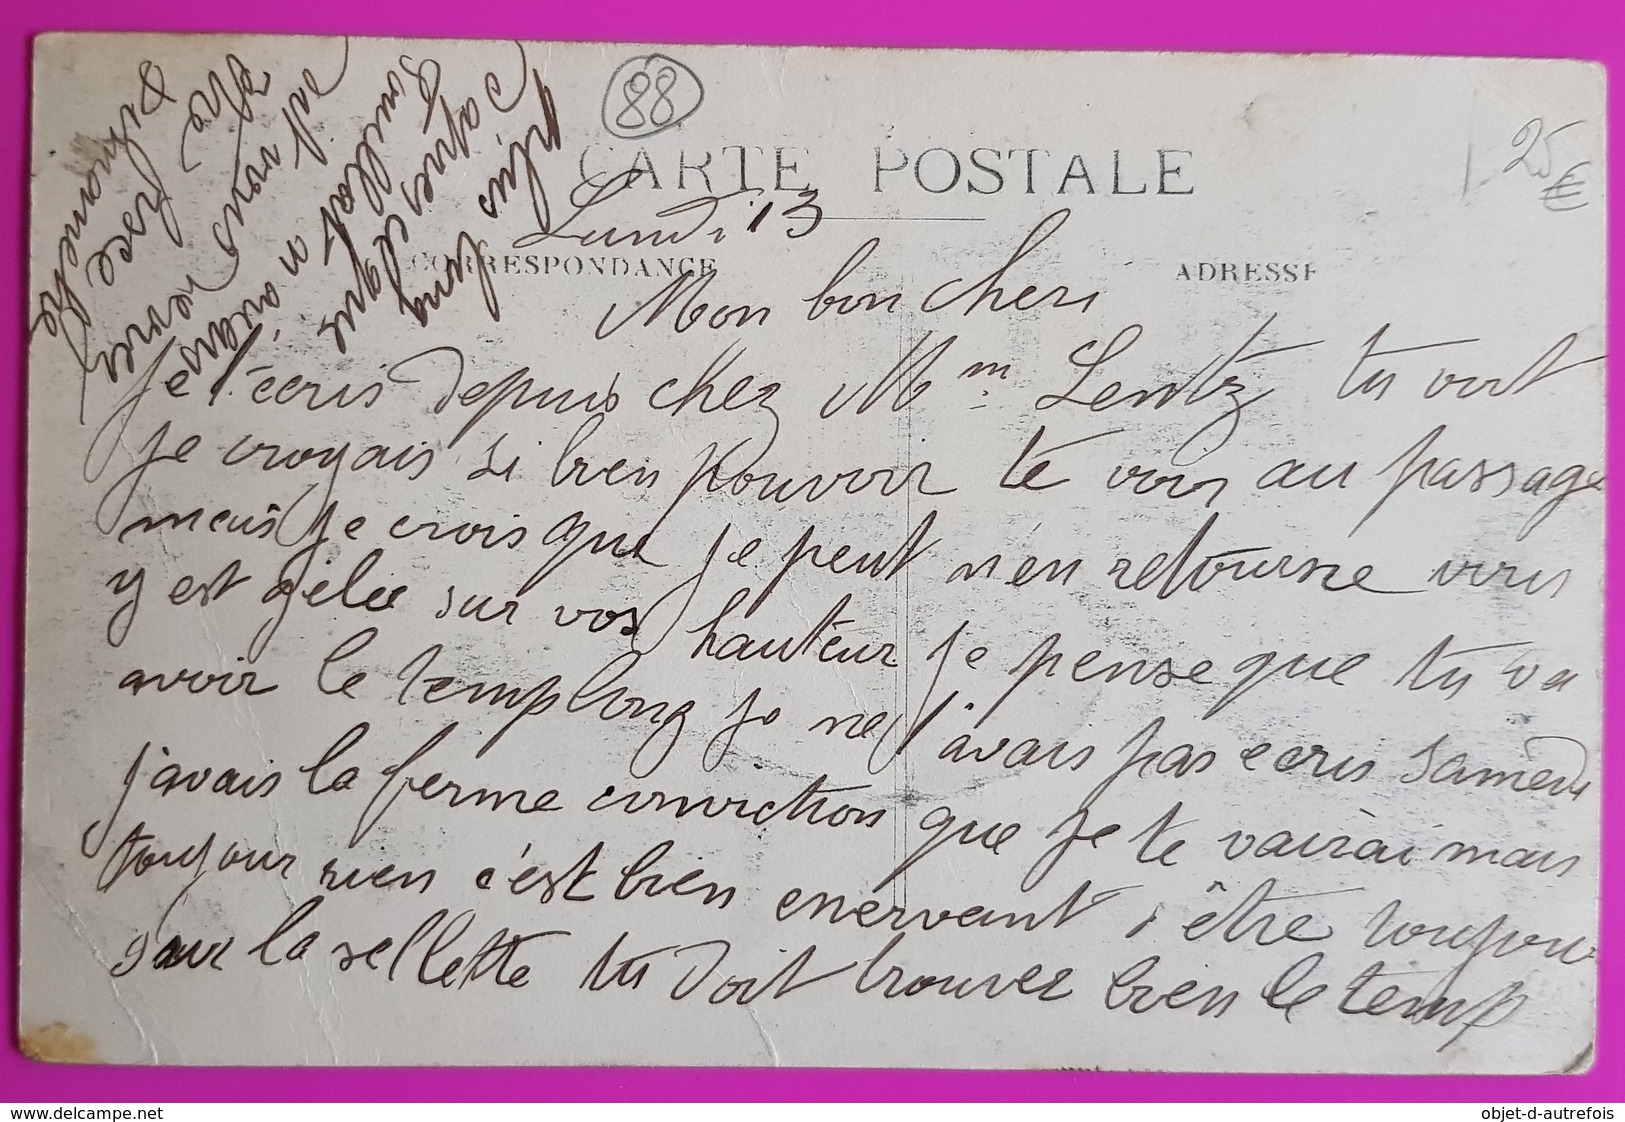 88
25 €
CARTE POSTALE
Lundi 13
CORRESPONDANCE
ADRESSE
Mon bon cheri
Je t'écris depuis chez Mm Lentz tu voit
je croyais si bien pouvoir te voir au passage
mais je crois que je peut m'en retourne
y est gélée sur vos hauteur je pense que tu va
avoir le temp long je ne t'avais pas ecris Samedi
j'avais la ferme conviction que je te vairai mais
toujour rien c'est bien enervant d'être toujour
sur la sellette tu doit trouver bien le temp
plus long
d'apres ce que
Bouillot n avais
dit vous
etre fixee
Dimanche
www.delcampe.net
objet-d-autrefois